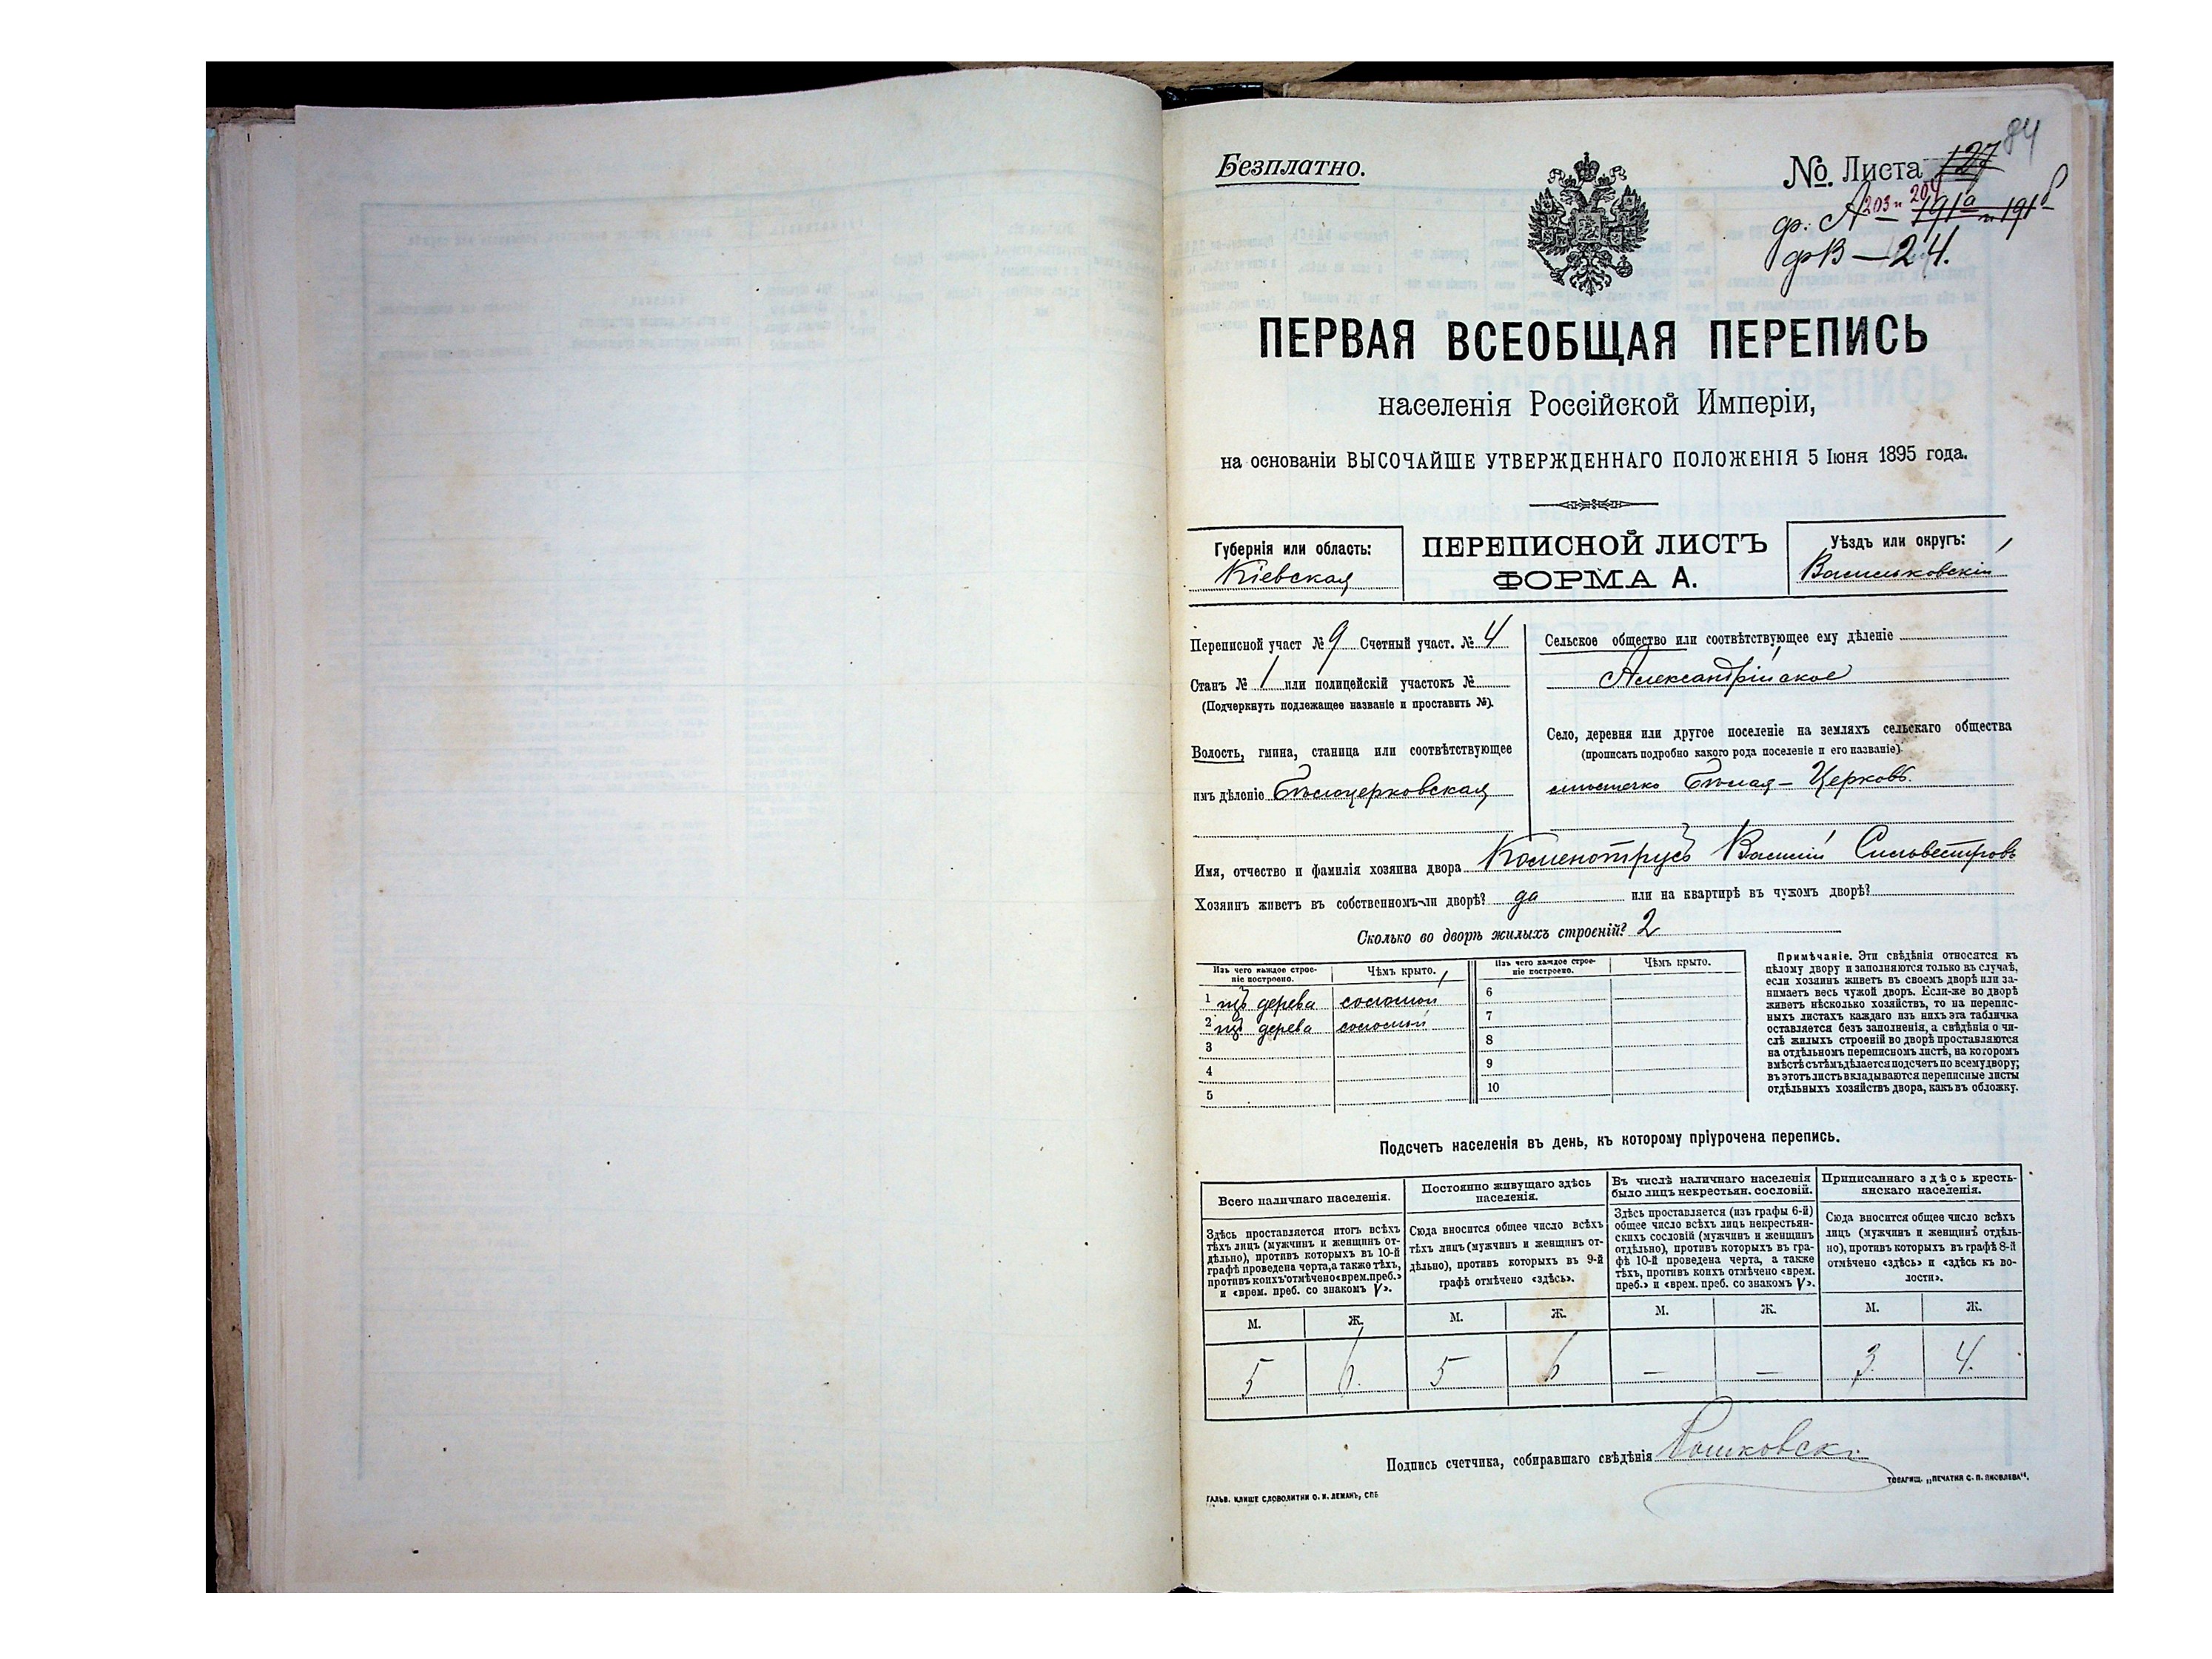 84
Безплатно.
№. Листа 127
ф. А 203 и 204 — 191а и 191б
ф В — 24.
ПЕРВАЯ ВСЕОБЩАЯ ПЕРЕПИСЬ
населенія Россійской Имперіи,
на основаніи ВЫСОЧАЙШЕ УТВЕРЖДЕННАГО ПОЛОЖЕНІЯ 5 Іюня 1895 года.
Губернія или область:
Кіевская
ПЕРЕПИСНОЙ ЛИСТЪ
ФОРМА А.
Уѣздъ или округъ:
Васильковскій
Переписной участ № 9 Счетный участ. № 4
Станъ № 1 или полицейскій участокъ №
(Подчеркнуть подлежащее названіе и проставить №).
Волость, гмина, станица или соотвѣтствующее
имъ дѣленіе Бѣлоцерковская
Сельское общество или соотвѣтствующее ему дѣленіе
Александрійское
Село, деревня или другое поселеніе на земляхъ сельскаго общества
(прописать подробно какого рода поселеніе и его названіе)
мѣстечко Бѣлая-Церковь.
Имя, отчество и фамилія хозяина двора Коменотрусъ Василій Сильвестровъ
Хозяинъ живетъ въ собственномъ-ли дворѣ? да или на квартирѣ въ чужомъ дворѣ?
Сколько во дворѣ жилыхъ строеній? 2
Изъ чего каждое строе-
ніе построено.
Чѣмъ крыто.
Изъ чего каждое строе-
ніе построено.
Чѣмъ крыто.
1 изъ дерева соломой
2 изъ дерева соломой
3
4
5
6
7
8
9
10
Примѣчаніе. Эти свѣдѣнія относятся къ
цѣлому двору и заполняются только въ случаѣ,
если хозяинъ живетъ въ своемъ дворѣ или за-
нимаетъ весь чужой дворъ. Если-же во дворѣ
живетъ нѣсколько хозяйствъ, то на перепис-
ныхъ листахъ каждаго изъ нихъ эта табличка
оставляется безъ заполненія, а свѣдѣнія о чи-
слѣ жилыхъ строеній во дворѣ проставляются
на отдѣльномъ переписномъ листѣ, на которомъ
вмѣстѣ съ тѣмъ дѣлается подсчетъ по всему двору;
въ этотъ листъ вкладываются переписные листы
отдѣльныхъ хозяйствъ двора, какъ въ обложку.
Подсчетъ населенія въ день, къ которому пріурочена перепись.
Всего наличнаго населенія.
Постоянно живущаго здѣсь
населенія.
Въ числѣ наличнаго населенія
было лицъ некрестьян. сословій.
Приписаннаго здѣсь кресть-
янскаго населенія.
Здѣсь проставляется итогъ всѣхъ
тѣхъ лицъ (мужчинъ и женщинъ от-
дѣльно), противъ которыхъ въ 10-й
графѣ проведена черта, а также тѣхъ,
противъ коихъ отмѣчено «врем. преб.»
и «врем. преб. со знакомъ V».
Сюда вносится общее число всѣхъ
тѣхъ лицъ (мужчинъ и женщинъ от-
дѣльно), противъ которыхъ въ 9-й
графѣ отмѣчено «здѣсь».
Здѣсь проставляется (изъ графы 6-й)
общее число всѣхъ лицъ некрестьян-
скихъ сословій (мужчинъ и женщинъ
отдѣльно), противъ которыхъ въ гра-
фѣ 10-й проведена черта, а также
тѣхъ, противъ коихъ отмѣчено «врем.
преб.» и «врем. преб. со знакомъ V».
Сюда вносится общее число всѣхъ
лицъ (мужчинъ и женщинъ отдѣль-
но), противъ которыхъ въ графѣ 8-й
отмѣчено «здѣсь» и «здѣсь къ во-
лости».
М. Ж. М. Ж. М. Ж. М. Ж.
5 6. 5 6 — — 3. 4.
Подпись счетчика, собиравшаго свѣдѣнія
ГАЛЬВ. КЛИШЕ СЛОВОЛИТНИ О. И. ЛЕМАНЪ, СПБ
ТОВАРИЩ. „ПЕЧАТНЯ С. П. ЯКОВЛЕВА".